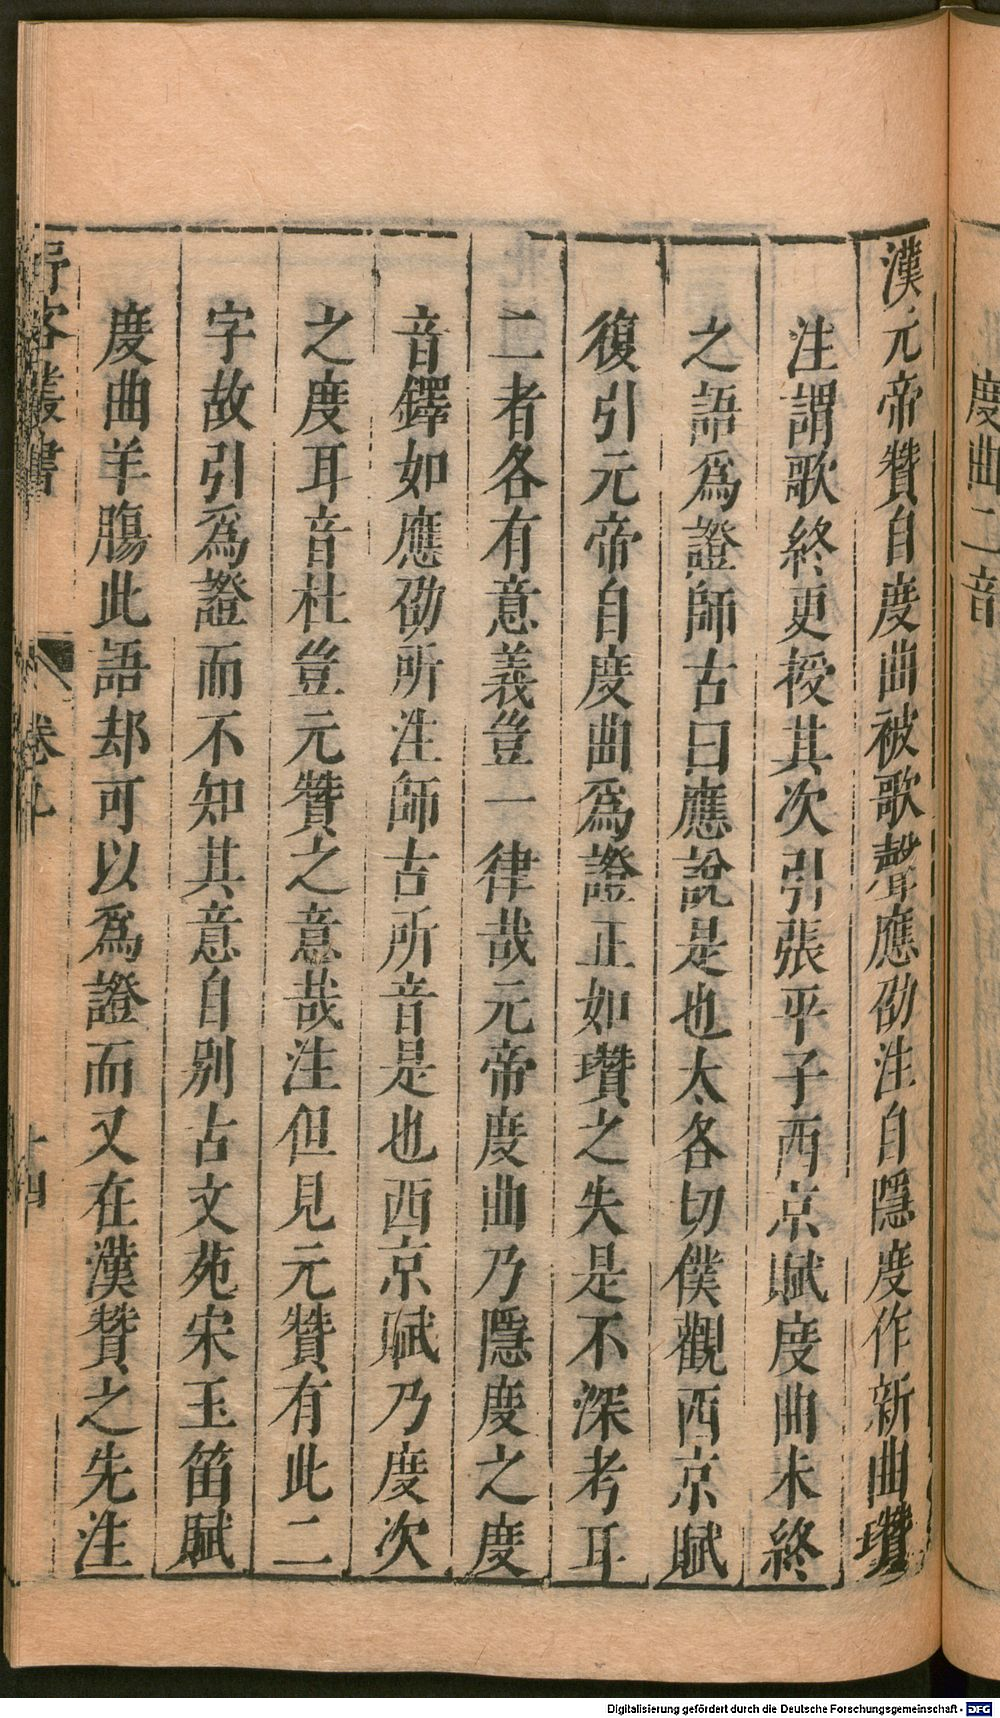 度曲二音
漢元帝贊自度曲被歌聲應劭注自隱度作新曲瓚
注謂歌終更授其次引張平子西京賦度曲未終
之語爲證師古曰應說是也太各切僕觀西京賦
復引元帝自度曲爲證正如瓚之失是不深考耳
二者各有意義豈一律哉元帝度曲乃隱度之度
音鐸如應劭所注師古所音是也西京賦乃度次
之度耳音杜豈元贊之意哉注但見元贊有此二
字故引爲證而不知其意自別古文苑宋玉笛賦
度曲羊膓此語却可以爲證而又在漢贊之先注
野客叢書
卷九
十四
Digitalisierung gefördert durch die Deutsche Forschungsgemeinschaft - DFG